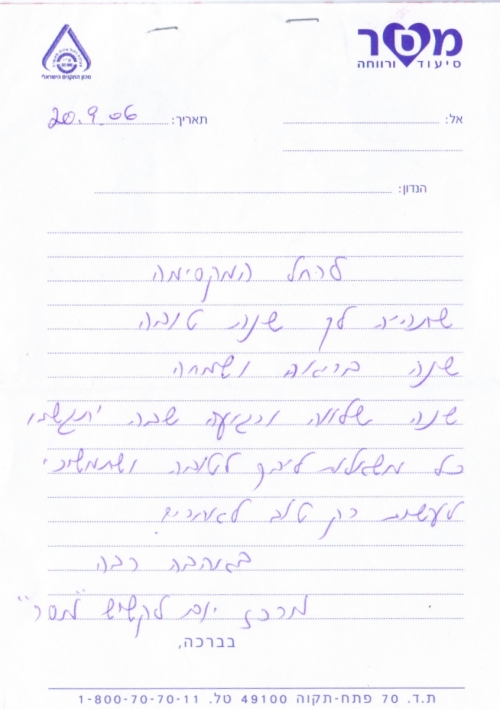 מסר
סיעוד ורווחה
מכון התקנים הישראלי
אל:
תאריך: 20.9.06
הנדון:
לרחל המקסימה
שתהיה לך שנה טובה
שנה בריאה ושמחה
שנה שלווה ורגועה שבה יתגשמו
כל משאלות ליבך לטובה ושתמשיכי
לעשות רק טוב לאחרים
באהבה רבה
מרכז יום לקשיש "מסר"
בברכה,
ת.ד. 70 פתח-תקוה 49100 טל. 1-800-70-70-11